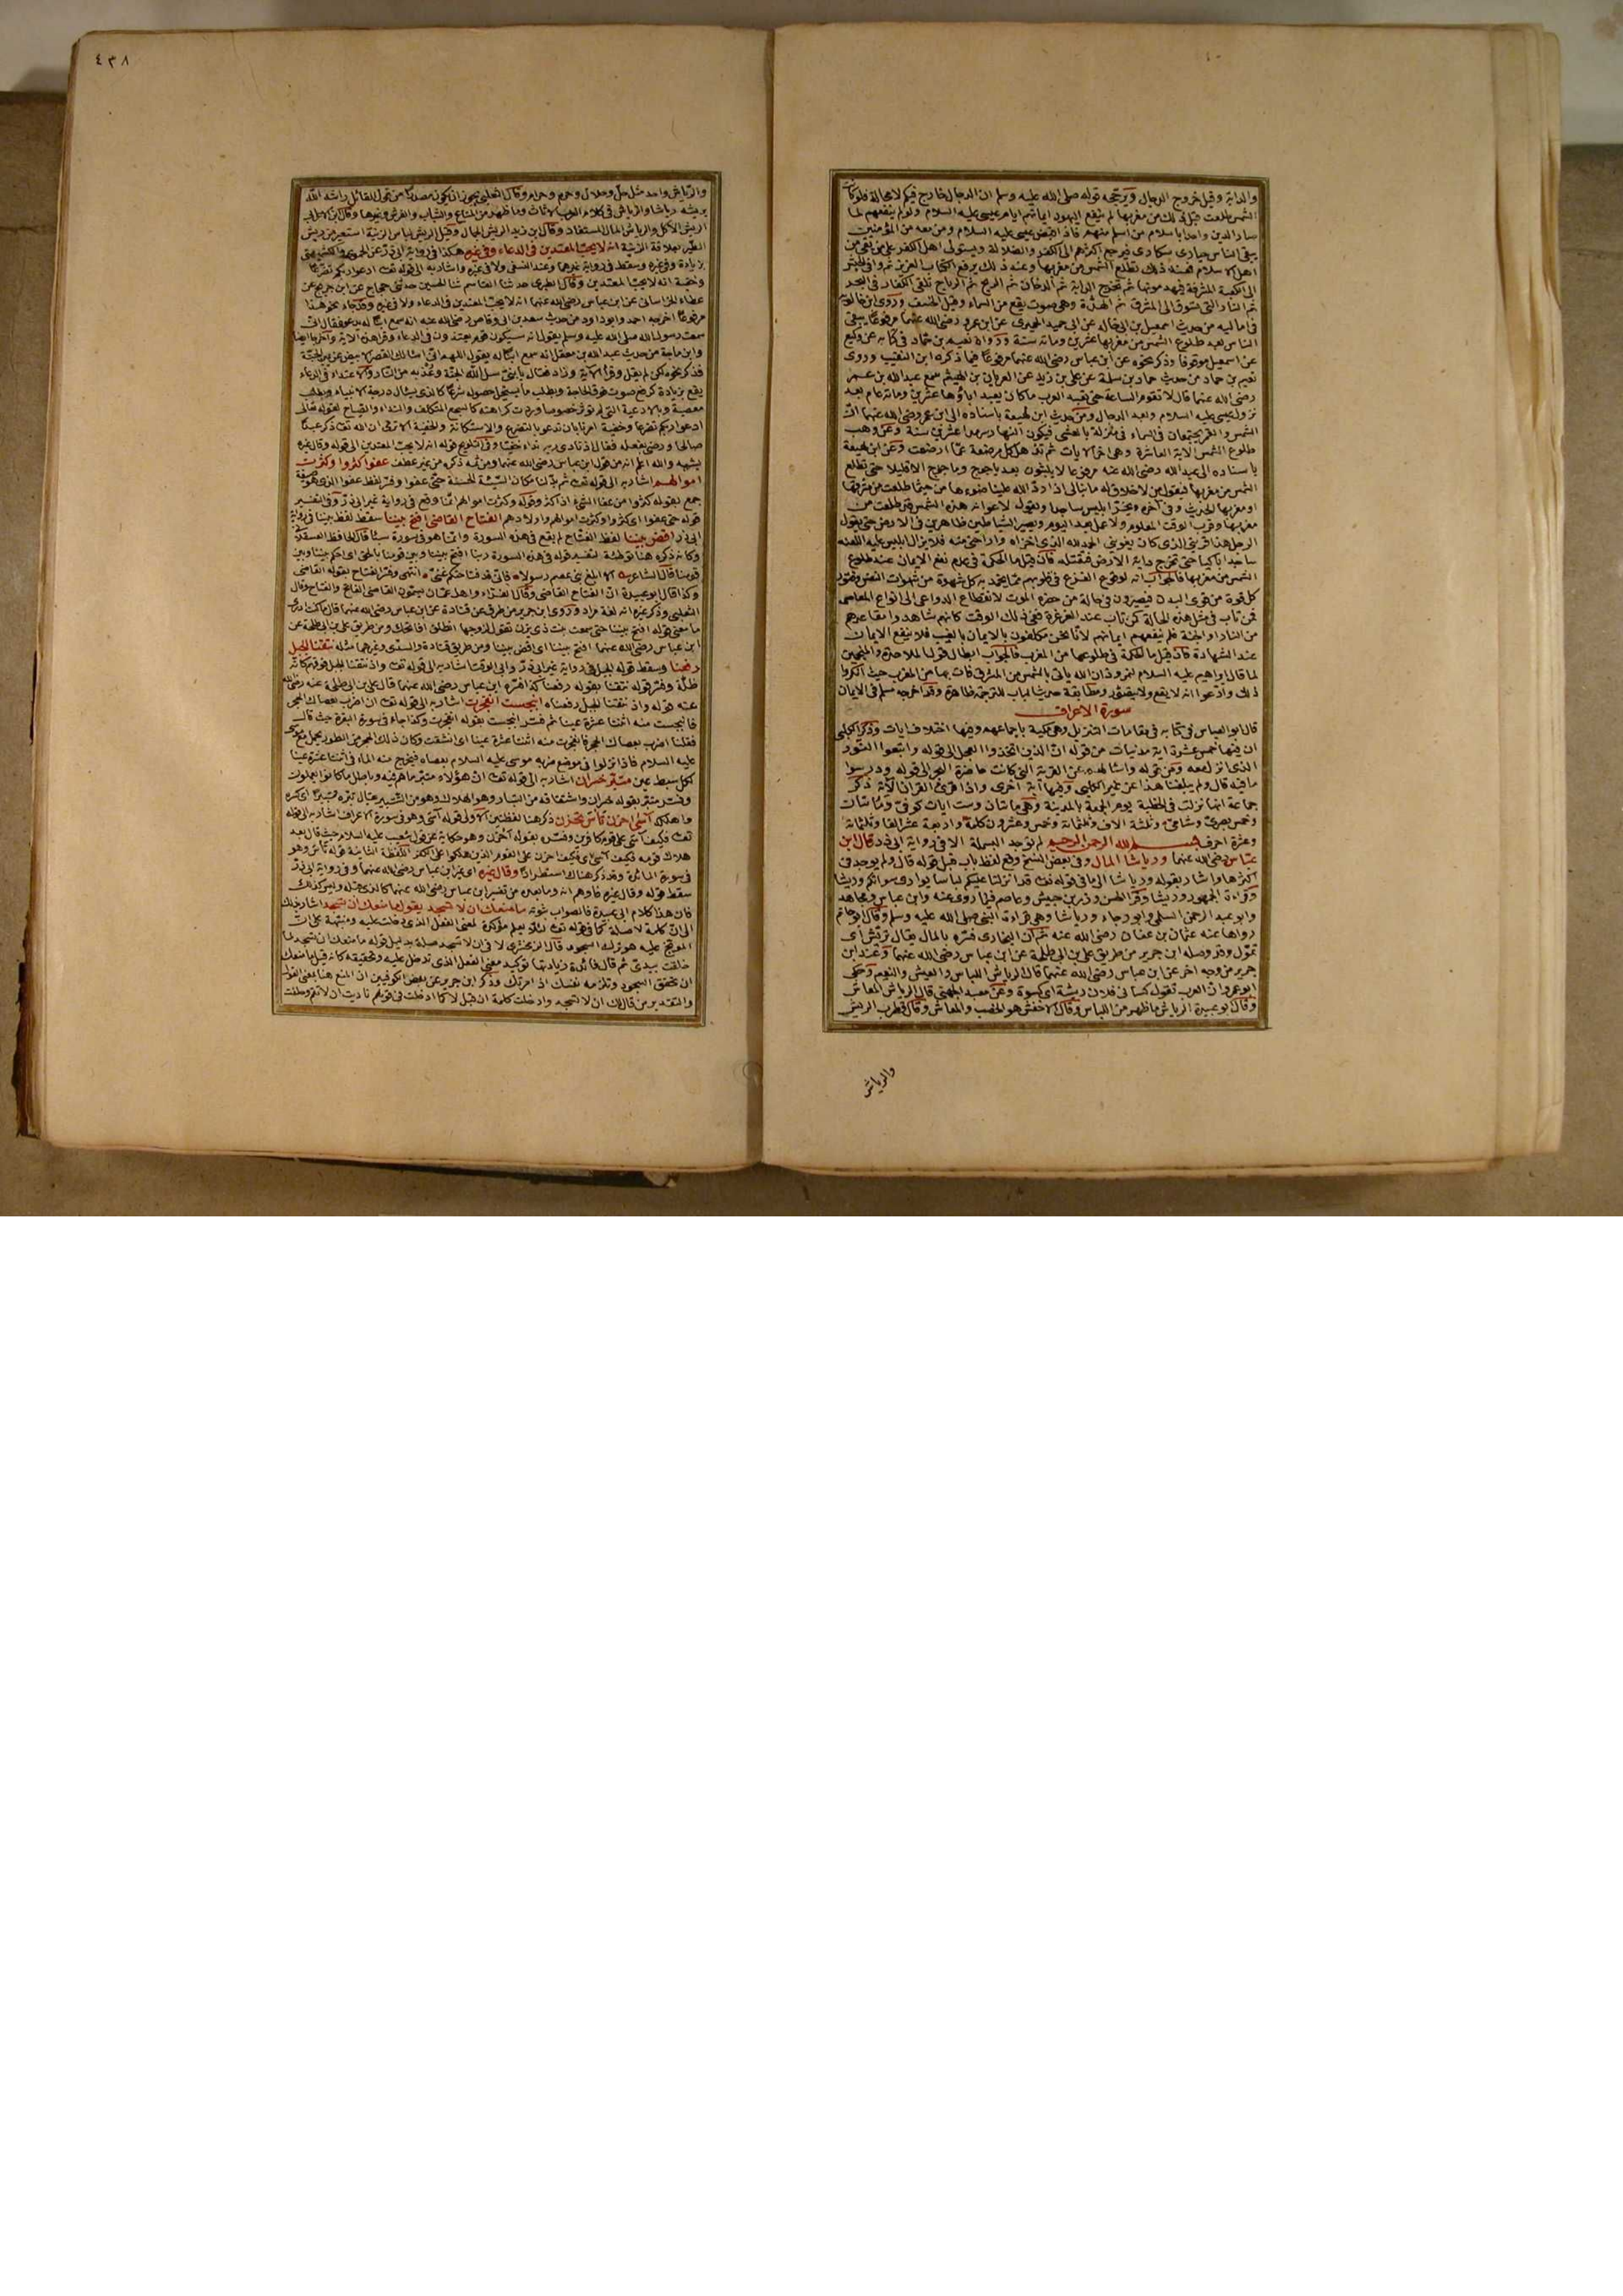 والدابة وقيل خروج الدجال ويرجحه قوله صلى الله عليه وسلم ان الدجال خارج فيكم لا محالة فلو كانت
الشمس طلعت قبل ذلك من مغربها لم ينفع اليهود ايمانهم ايام عيسى عليه السلام ولو لم ينفعهم لما
صار الدين واحدا باسلام من اسلم منهم فاذا قبض عيسى عليه السلام ومن معه من المؤمنين
يبقى الناس حيارى سكارى فيرجع اكثرهم الى الكفر والضلالة ويستولى اهل الكفر على من بقى من
اهل الاسلام فعند ذلك تطلع الشمس من مغربها وعند ذلك يرفع الكتاب العزيز ثم
الى الكعبة المشرفة فيهدمونها ثم تخرج الدابة ثم الدخان ثم الريح ثم الرياح تلقى الكفار فى البحر
ثم النار التى تسوق الى المشرق ثم الهدة وهى صوت يقع من السماء وقيل الخسف وروى ابن
فى اماليه من حديث اسمعيل بن ابى خالد عن ابى حميد الحميرى عن ابن عمرو رضى الله عنهما مرفوعا يبقى
الناس بعد طلوع الشمس من مغربها عشرين ومائة سنة ورواه نعيم بن حماد فى كتابه عن وكيع
عن اسمعيل موقوفا وذكر نحوه عن ابن عباس رضى الله عنهما مرفوعا فيما ذكره ابن النقيب وروى
نعيم بن حماد من حديث حماد بن سلمة عن على بن زيد عن العريان بن الهيثم سمع عبد الله بن عمر
رضى الله عنهما قال لا تقوم الساعة حتى تعبد العرب ما كان يعبد اباؤها عشرين ومائة عام بعد
نزول عيسى عليه السلام وبعد الدجال ومن حديث ابن لهيعة باسناده الى ابن عمر رضى الله عنهما ان
الشمس والقمر يجتمعان فى السماء فى منزلة بالعشى فيكون النهار سرمدا عشرين سنة وعن وهب
طلوع الشمس الاية العاشرة وهى اخر الايات ثم تذهل كل مرضعة عما ارضعت وعن ابن لهيعة
باسناده الى عبد الله رضى الله عنه مرفوعا لا يلبثون بعد ياجوج وماجوج الا قليلا حتى تطلع
الشمس من مغربها فيقول من لا خلاق له ما نبالى اذا رد الله علينا ضوءها من حيثما طلعت من مشرقها
او مغربها الحديث وفى آخره ويخر ابليس ساجدا ويقول لاعوانه هذه الشمس قد طلعت من
مغربها وقرب الوقت المعلوم ولا عمل بعد اليوم وتصير الشياطين ظاهرين فى الارض حتى يقول
الرجل هذا قرينى الذى كان يغوينى الحمد لله الذى اخزاه واراحنى منه فلا يزال ابليس عليه اللعنة
ساجدا باكيا حتى تخرج دابة الارض فتقتله فان قيل ما الحكمة فى عدم نفع الايمان عند طلوع
الشمس من مغربها فالجواب انه لوقوع الفزع فى قلوبهم مما يخمد به كل شهوة من شهوات النفس وفتور
كل قوة من قوى البدن فيصيرون فى حالة من حضره الموت لانقطاع الدواعى الى انواع المعاصى
فمن تاب فى مثل هذه الحالة كمن تاب عند الغرغرة ففى ذلك الوقت كانهم شاهدوا مقاعدهم
من النار او الجنة فلم ينفعهم ايمانهم لانا نحن مكلفون بالايمان بالغيب فلا ينفع الايمان
عند الشهادة فان قيل ما الحكمة فى طلوعها من المغرب فالجواب ابطال قول الملاحدة والمنجمين
لما قال ابراهيم عليه السلام لنمرود ان الله ياتى بالشمس من المشرق فات بها من المغرب حيث انكروا
ذلك وادعوا انه لا يقع ولا يتصور ومطابقة حديث الباب للترجمة ظاهرة وقد اخرجه مسلم فى الايمان
سورة الاعراف
قال ابو العباس فى كتابه فى مقامات التنزيل وهى مكية باجماعهم وفيها اختلاف ايات وذكر الكلبى
ان فيها خمس عشرة اية مدنيات من قوله ان الذين اتخذوا العجل الى قوله واتبعوا النور
الذى انزل معه ومن قوله واسالهم عن القرية التى كانت حاضرة البحر الى قوله ودرسوا
ما فيه قال ولم يبلغنا هذا عن غير الكلبى وفيها آية اخرى واذا قرئ القران الاية ذكر
جماعة انها نزلت فى الخطبة يوم الجمعة بالمدينة وهى مائتان وست ايات كوفى ومائتان
وخمس بصرى وشامى وثلثة الاف وثلثمائة وخمس وعشرون كلمة واربعة عشر الفا وثلثمائة
وعشرة احرف بسم الله الرحمن الرحيم لم توجد البسملة الا فى رواية ابى ذر قال ابن
عباس رضى الله عنهما ورياشا المال وفى بعض النسخ وقع لفظ باب قبل قوله قال ولم يوجد فى
اكثرها واشار بقوله ورياشا الى ما فى قوله تعالى قد انزلنا عليكم لباسا يوارى سوآتكم وريشا
وقراءة الجمهور وريشا وقرا الحسن وزر بن حبيش وعاصم فيما روى عنه وابن عباس ومجاهد
وابو عبد الرحمن السلمى وابو رجاء ورياشا وهى قراءة النبى صلى الله عليه وسلم وقال ابو حاتم
رواها عنه عثمان بن عفان رضى الله عنه ثم ان البخارى فسره بالمال يقال تريش اى
تمول وقد وصله ابن جرير من طريق على بن ابى طلحة عن ابن عباس رضى الله عنهما وعند ابن
جرير من وجه اخر عن ابن عباس رضى الله عنهما قال الرياش اللباس والعيش والنعيم وحكى
ابو عمرو ان العرب تقول كسانى فلان ريشة اى كسوة وعن معبد الجهنى قال الرياش المعاش
وقال ابو عبيدة الرياش ما ظهر من اللباس وقال الاخفش هو الخصب والمعاش وقال قطرب الريش
والرياش
٤٣٨
والرياش واحد مثل حل وحلال وحرم وحرام وقال الثعلبى يجوز ان يكون مصدرا من قول القائل راشه الله
يريشه رياشا والرياش فى كلام العرب الاثاث وما ظهر من المتاع والثياب والفرش ونحوها
الريش الاكل والرياش المال المستفاد وقال ابن زيد الريش الجمال وقيل الريش لباس الزينة استعير من ريش
الطير بعلاقة الزينة انه لا يحب المعتدين فى الدعاء وفى غيره هكذا فى رواية ابى ذر عن الحموى والكشميهنى
بزيادة وفى غيره وسقط فى رواية غيرهما وعند النسفى ولا فى غيره واشار به الى قوله تعالى ادعوا ربكم تضرعا
وخفية انه لا يحب المعتدين وقال الطبرى حدثنا القاسم ثنا الحسين حدثنى حجاج عن ابن جريج عن
عطاء الخراسانى عن ابن عباس رضى الله عنهما انه لا يحب المعتدين فى الدعاء ولا فى غيره وقد جاء نحو هذا
مرفوعا اخرجه احمد وابو داود من حديث سعد بن ابى وقاص رضى الله عنه انه سمع ابنا له يدعو فقال انى
سمعت رسول الله صلى الله عليه وسلم يقول انه سيكون قوم يعتدون فى الدعاء وقرا هذه الاية
وابن ماجة من حديث عبد الله بن مغفل انه سمع ابنا له يقول اللهم انى اسالك القصر الابيض عن يمين الجنة
فذكر نحوه لكن لم يقل وقرا الاية وزاد فقال يا بنى سل الله الجنة وعذ به من النار والاعتداء فى الدعاء
يقع بزيادة كرفع صوت فوق الحاجة وبطلب ما يستحيل حصوله شرعا كالذى يسال درجة الانبياء وبطلب
معصية وبالادعية التى لم تؤثر خصوصا وردت كراهته كالسجع المتكلف والنداء والصياح لقوله تعالى
ادعوا ربكم تضرعا وخفية امرنا بان ندعو بالتضرع والاستكانة والخفية الا ترى ان الله تعالى ذكر عبدا
صالحا ورضى بفعله فقال اذ نادى ربه نداء خفيا وفى التلويح قوله انه لا يحب المعتدين الى قوله وقال غيره
يشبه والله اعلم انه من قول ابن عباس رضى الله عنهما ومن ثمه ذكره من غير عطف عفوا كثروا وكثرت
اموالهم اشار به الى قوله تعالى ثم بدلنا مكان السيئة الحسنة حتى عفوا وفسر لفظ عفوا الذى هو صيغة
جمع بقوله كثروا من عفا الشىء اذا كثر وقوله وكثرت اموالهم انما وقع فى رواية غير ابى ذر وفى التفسير
قوله حتى عفوا اى كثروا وكثرت اموالهم واولادهم الفتاح القاضى افتح بيننا سقط لفظ بيننا فى رواية
ابى ذر اقض بيننا لفظ الفتاح لم يقع فى هذه السورة وانما هو فى سورة سبأ قال الحافظ العسقلانى
وكانه ذكره هنا توطئة لتفسير قوله فى هذه السورة ربنا افتح بيننا وبين قومنا بالحق اى احكم بيننا وبين
قومنا قال الشاعر الا ابلغ بنى عصم رسولا فانى عن فتاحتكم غنى انتهى وفسر الفتاح بقوله القاضى
وكذا قال ابو عبيدة ان الفتاح القاضى وقال الفراء واهل عمان يسمون القاضى الفاتح والفتاح وقال
الثعلبى وذكر غيره انه لغة مراد وروى ابن جرير من طرق عن قتادة عن ابن عباس رضى الله عنهما قال ما كنت ادرى
ما معنى قوله افتح بيننا حتى سمعت بنت ذى يزن تقول لزوجها انطلق افاتحك ومن طريق على بن ابى طلحة عن
ابن عباس رضى الله عنهما افتح بيننا اى اقض بيننا ومن طريق قتادة والسدى وغيرهما مثله نتقنا الجبل
رفعنا وسقط قوله الجبل فى رواية غير ابى ذر وابى الوقت اشار به الى قوله تعالى واذ نتقنا الجبل فوقهم كانه
ظلة وفسر قوله نتقنا بقوله رفعنا كذا فسره ابن عباس رضى الله عنهما قال على بن ابى طلحة عنه رضى الله
عنه قوله واذ نتقنا الجبل رفعناه انبجست انفجرت اشار به الى قوله تعالى ان اضرب بعصاك الحجر
فانبجست منه اثنتا عشرة عينا ثم فسر انبجست بقوله انفجرت وكذا جاء فى سورة البقرة حيث قال
فقلنا اضرب بعصاك الحجر فانفجرت منه اثنتا عشرة عينا اى انشقت وكان ذلك الحجر من الطور يحمل مع موسى
عليه السلام فاذا نزلوا فى موضع ضربه موسى عليه السلام بعصاه فيخرج منه الماء فى اثنتا عشرة عينا
لكل سبط عين متبر خسران اشار به الى قوله تعالى ان هؤلاء متبر ما هم فيه وباطل ما كانوا يعملون
وفسر متبر بقوله خسران واشتقاقه من التبار وهو الهلاك وهو من التتبير يقال تبره تتبيرا اى كسره
واهلكه آسى احزن تأس تحزن ذكر هنا لفظتين الاولى قوله آسى وهو فى سورة الاعراف اشار به الى قوله
تعالى فكيف آسى على قوم كافرين وفسره بقوله احزن وهو حكاية عن قول شعيب عليه السلام حيث قال بعد
هلاك قومه فكيف آسى اى فكيف احزن على القوم الذين هلكوا على الكفر اللفظة الثانية قوله تأس وهو
فى سورة المائدة وقد ذكر هناك استطرادا وقال غيره اى غير ابن عباس رضى الله عنهما وفى رواية ابى ذر
سقط قوله وقال غيره فاوهم انه وما بعده من تفسير ابن عباس رضى الله عنهما كالذى قبله وليس كذلك
فان هذا كلام ابى عبيدة فالصواب ثبوته ما منعك ان لا تسجد يقول ما منعك ان تسجد اشار بذلك
الى ان كلمة لا صلة كما فى قوله تعالى لئلا يعلم مؤكدة لمعنى الفعل الذى دخلت عليه ومنبهة على ان
الموبخ عليه هو ترك السجود قال الزمخشرى لا فى ان لا تسجد صلة بدليل قوله ما منعك ان تسجد لما
خلقت بيدى ثم قال فائدة زيادتها توكيد معنى الفعل الذى تدخل عليه وتحقيقه كانه قيل ما منعك
ان تحقق السجود وتلزمه نفسك اذ امرتك وذكر ابن جرير عن بعض الكوفيين ان المنع هنا بمعنى القول
والتقدير من قال لك ان لا تسجد وادخلت كلمة ان قبل لا كما ادخلت فى قولهم ناديت ان لا تقم وحلفت